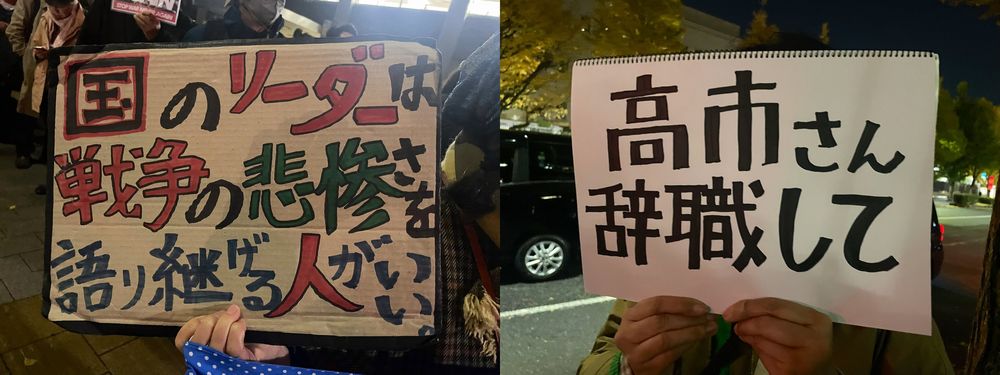 STOP WAR NEVER AGAIN
国のリーダーは
戦争の悲惨さを
語り継げる人がいい。
高市さん
辞職して